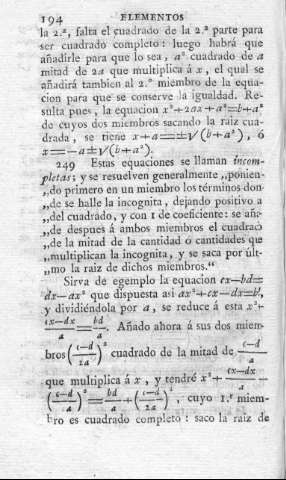 194 ELEMENTOS
la 2.ª, falta el cuadrado de la 2.ª parte para
ser cuadrado completo : luego habrá que
añadirle para que lo sea, a² cuadrado de a
mitad de 2a que multiplica á x, el qual se
añadirá tambien al 2.º miembro de la equa-
cion para que se conserve la igualdad. Re-
sulta pues, la equacion x²+2ax+a²=b+a²
de cuyos dos miembros sacando la raiz cua-
drada, se tiene x+a=±√(b+a²), ó
x=-a±√(b+a²).
249 Estas equaciones se llaman incom-
pletas; y se resuelven generalmente „ponien-
„do primero en un miembro los términos don-
„de se halla la incognita, dejando positivo a
„del cuadrado, y con 1 de coeficiente: se aña-
„de despues á ambos miembros el cuadrado
„de la mitad de la cantidad ó cantidades que
„multiplican la incognita, y se saca por últ-
„mo la raiz de dichos miembros.“
Sirva de egemplo la equacion cx-bd=
dx-ax² que dispuesta asi ax²+cx-dx=bd,
y dividiéndola por a, se reduce á esta x²+
(cx-dx)/a = bd/a. Añado ahora á sus dos miem-
bros ((c-d)/2a)² cuadrado de la mitad de (c-d)/a
que multiplica á x, y tendré x²+(cx-dx)/a
((c-d)/2a)²=bd/a+((c-d)/2a)², cuyo 1.º miem-
bro es cuadrado completo : saco la raiz de